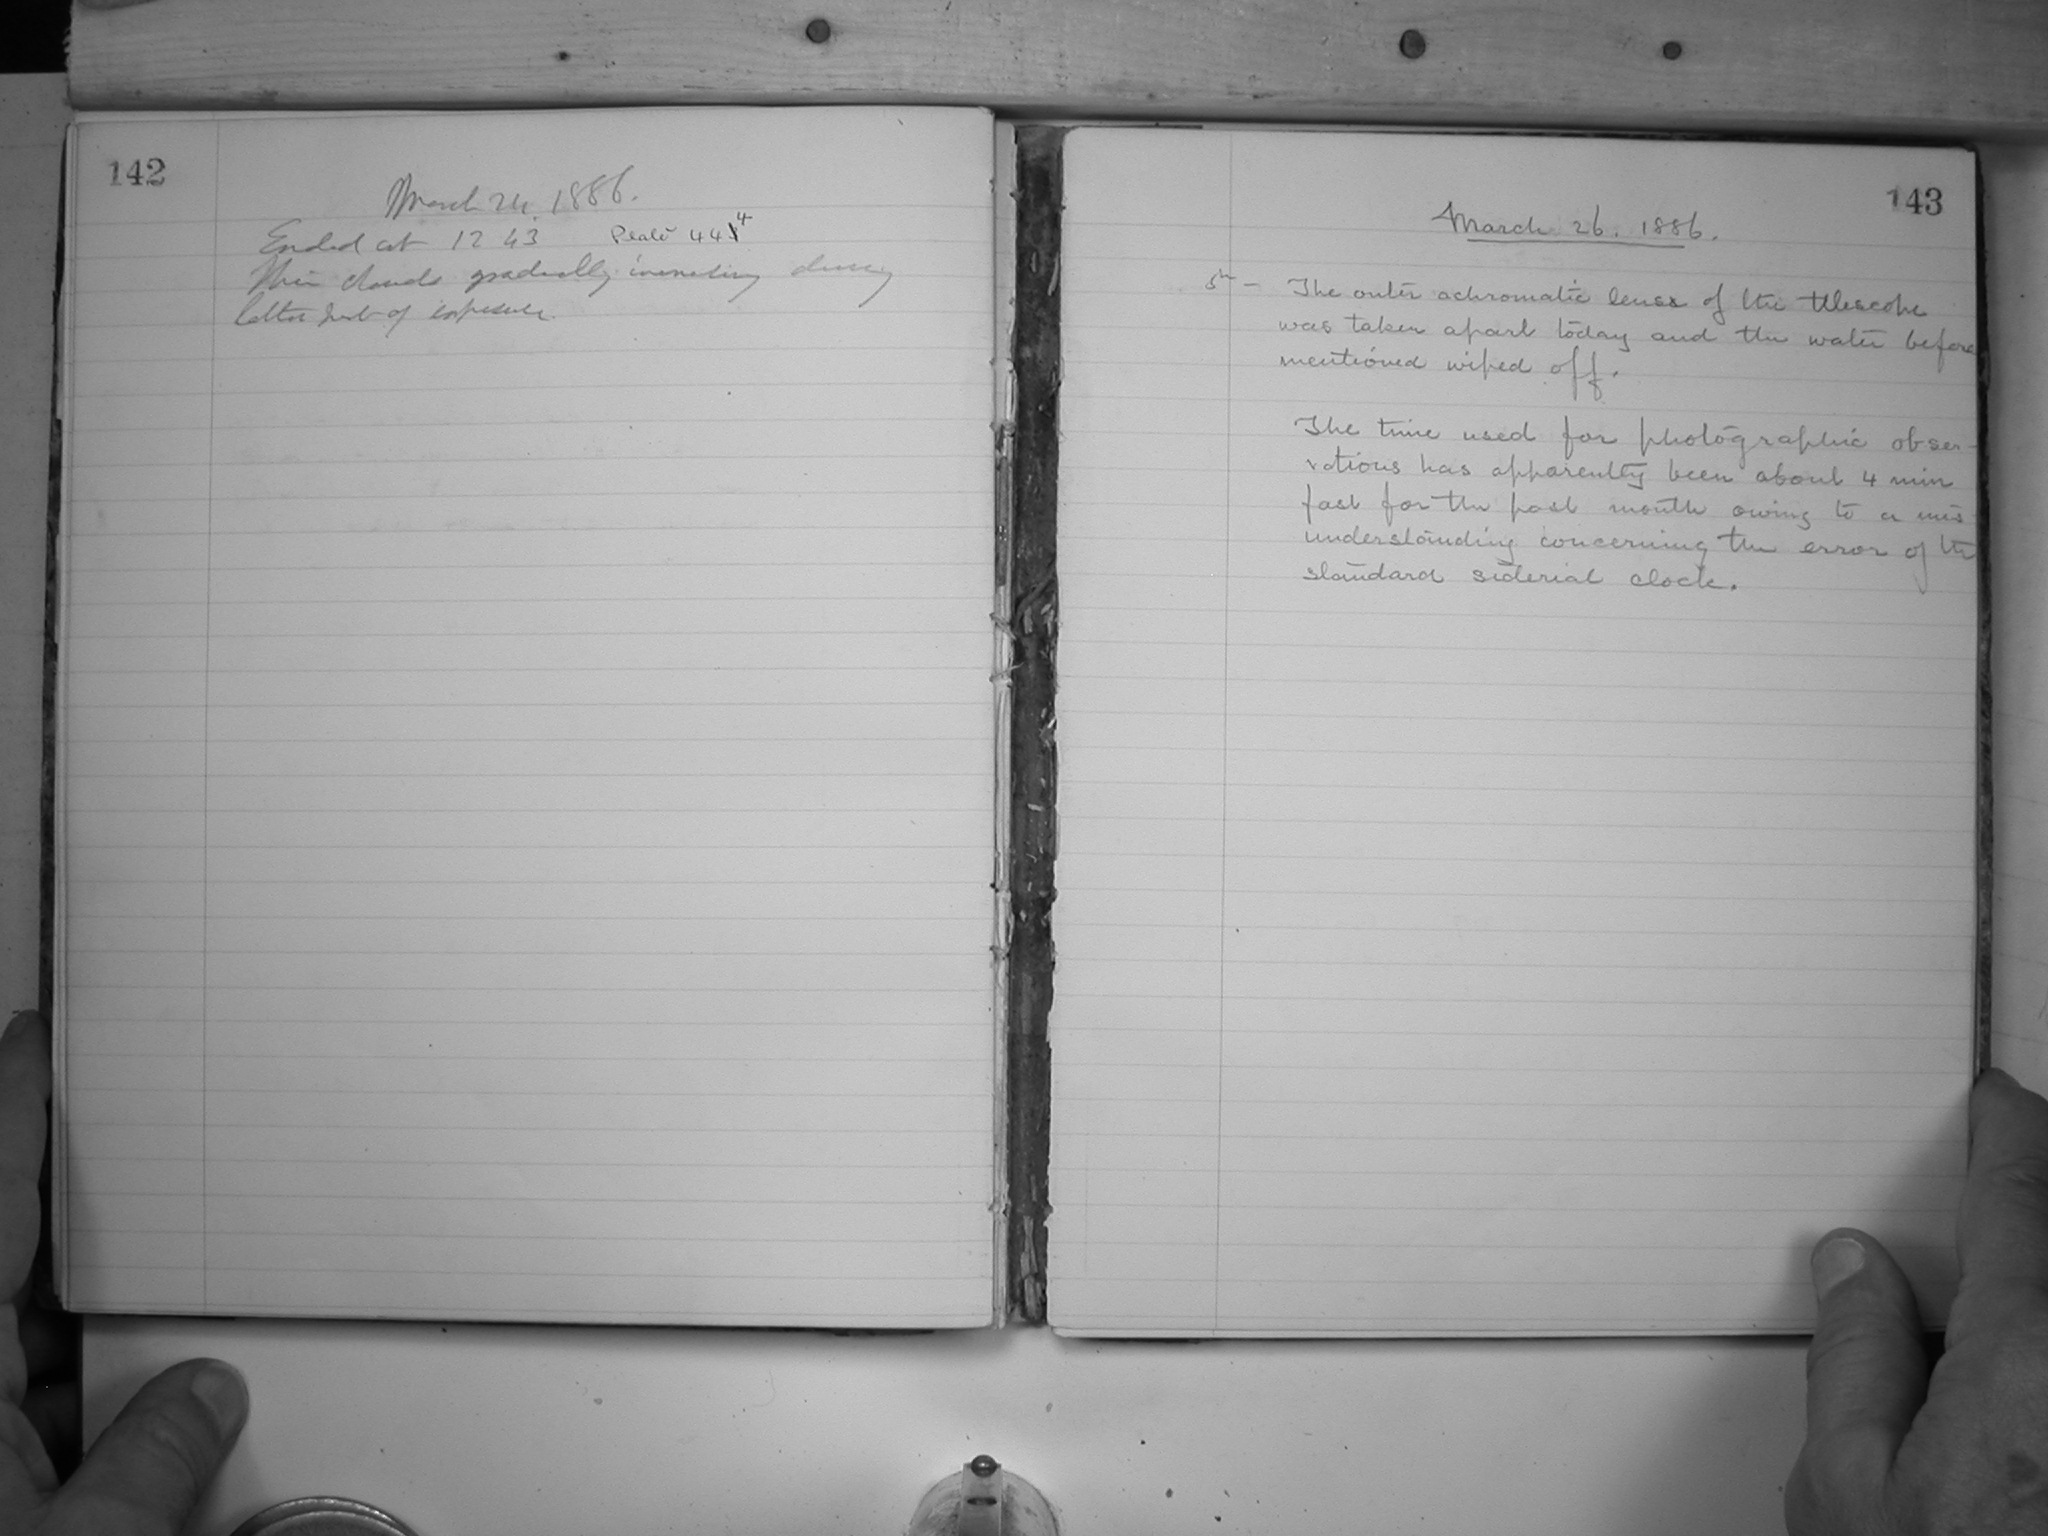 142
March 24. 1886.
Ended at 12 43 Plate 444
Thin clouds gradually increasing during
latter part of exposure.
143
March 26. 1886.
5h - The outer achromatic lens of the telescope
was taken apart today and the water before
mentioned wiped off.
The time used for photographic obser-
vations has apparently been about 4 min
fast for the past month owing to a mis
understanding concerning the error of the
standard siderial clock.